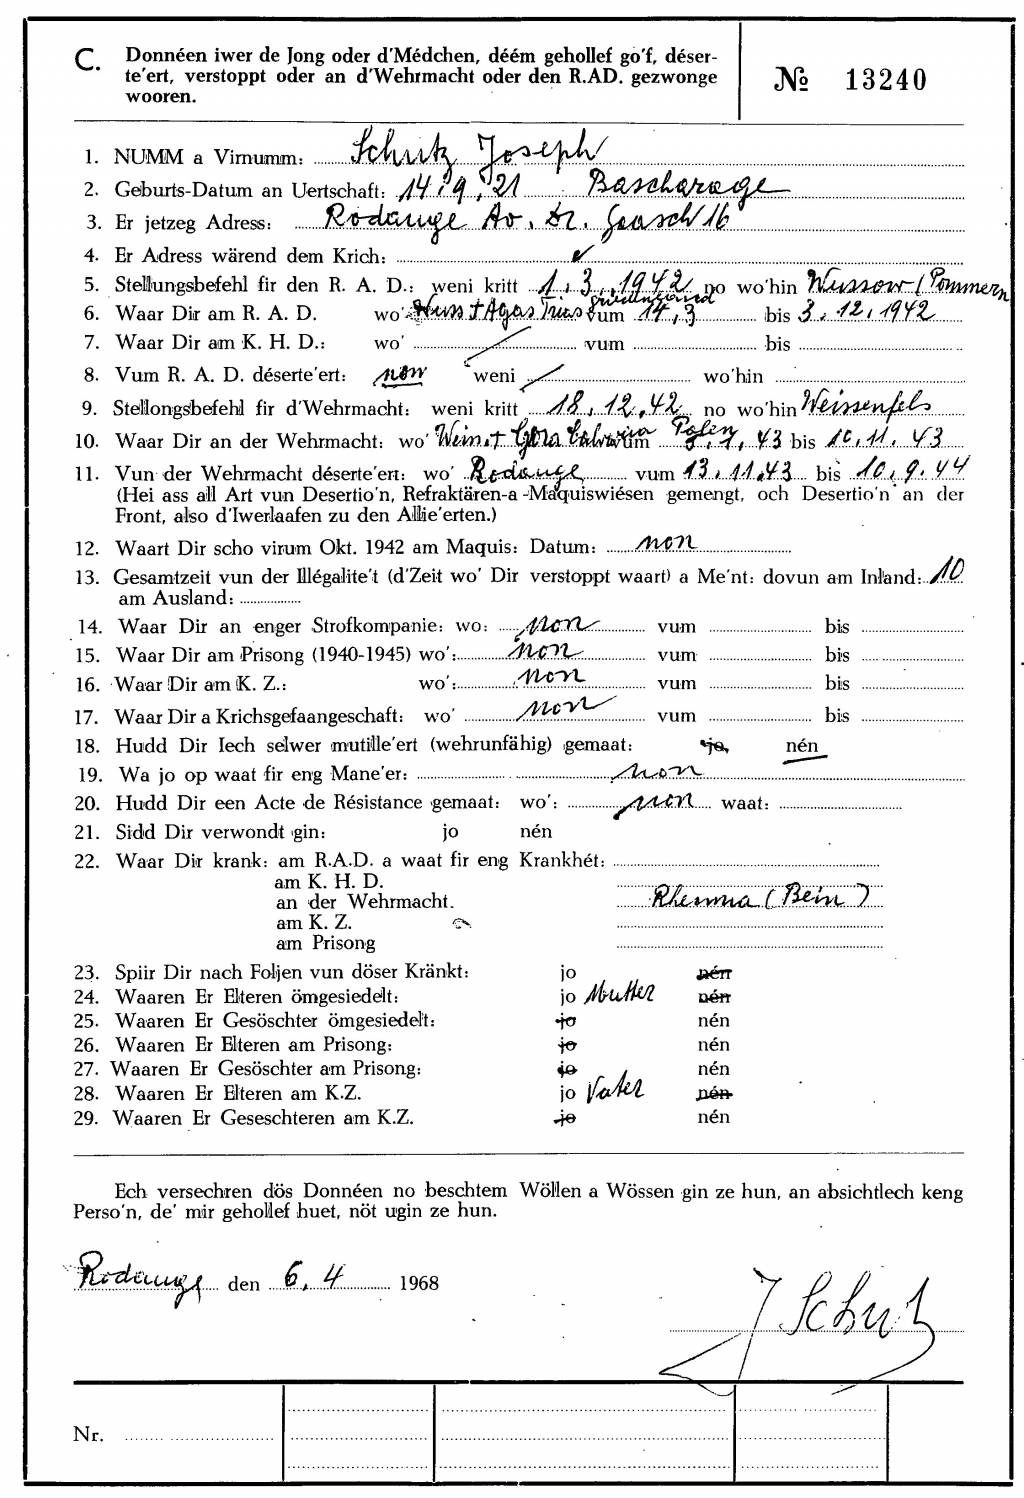 C. Donnéen iwer de Jong oder d'Médchen, déém gehollef go'f, déser-
te'ert, verstoppt oder an d'Wehrmacht oder den R.AD. gezwonge
wooren.
№ 13240
1. NUMM a Virnumm: Schutz Joseph
2. Geburts-Datum an Uertschaft: 14.9.21 Bascharage
3. Er jetzeg Adress: Rodange Av. Dr. Gaasch 16
4. Er Adress wärend dem Krich:
5. Stellungsbefehl fir den R. A. D.: weni kritt 1.3.1942 no wo'hin Wussow (Pommern
6. Waar Dir am R. A. D. wo' vum 14.3 bis 3.12.1942
7. Waar Dir am K. H. D.: wo' vum bis
8. Vum R. A. D. déserte'ert: non weni wo'hin
9. Stellongsbefehl fir d'Wehrmacht: weni kritt 18.12.42 no wo'hin Weissenfels
10. Waar Dir an der Wehrmacht: wo' Polen vum 43 bis 10.11.43
11. Vun der Wehrmacht déserte'ert: wo' Rodange vum 13.11.43 bis 10.9.44
(Hei ass all Art vun Desertio'n, Refraktären-a -Maquiswiésen gemengt, och Desertio'n an der
Front, also d'Iwerlaafen zu den Allie'erten.)
12. Waart Dir scho virum Okt. 1942 am Maquis: Datum: non
13. Gesamtzeit vun der Illégalite't (d'Zeit wo' Dir verstoppt waart) a Me'nt: dovun am Inland: 10
am Ausland:
14. Waar Dir an enger Strofkompanie: wo: non vum bis
15. Waar Dir am Prisong (1940-1945) wo': non vum bis
16. Waar Dir am K. Z.: wo': non vum bis
17. Waar Dir a Krichsgefaangeschaft: wo' non vum bis
18. Hudd Dir Iech selwer mutille'ert (wehrunfähig) gemaat: jo, nén
19. Wa jo op waat fir eng Mane'er: non
20. Hudd Dir een Acte de Résistance gemaat: wo': non waat:
21. Sidd Dir verwondt gin: jo nén
22. Waar Dir krank: am R.A.D. a waat fir eng Krankhét:
am K. H. D.
an der Wehrmacht. Rheuma (Bein)
am K. Z.
am Prisong
23. Spiir Dir nach Foljen vun döser Kränkt: jo nén
24. Waaren Er Elteren ömgesiedelt: jo Mutter nén
25. Waaren Er Gesöschter ömgesiedelt: jo nén
26. Waaren Er Elteren am Prisong: jo nén
27. Waaren Er Gesöschter am Prisong: jo nén
28. Waaren Er Elteren am K.Z. jo Vater nén
29. Waaren Er Geseschteren am K.Z. jo nén
Ech versechren dös Donnéen no beschtem Wöllen a Wössen gin ze hun, an absichtlech keng
Perso'n, de' mir gehollef huet, nöt ugin ze hun.
Rodange den 6.4 1968
J Schutz
Nr.